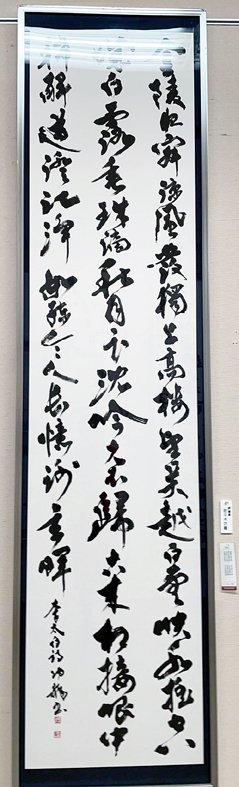 金陵夜寂涼風發獨上高樓望吳越白雲映水搖空
城白露垂珠滴秋月下沈吟久不歸古來相接眼中
稀解道澄江淨如練令人長憶謝玄暉
李太白詩